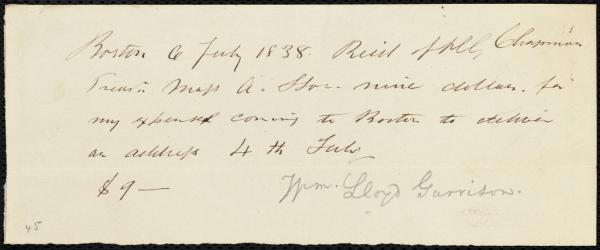 Boston 6 July 1838. Recd of H. G. Chapman
Treasr Mass A. S Soc. nine dollars for
my expenses coming to Boston to deliver
an address 4th July
$9—
Wm. Lloyd Garrison.
45